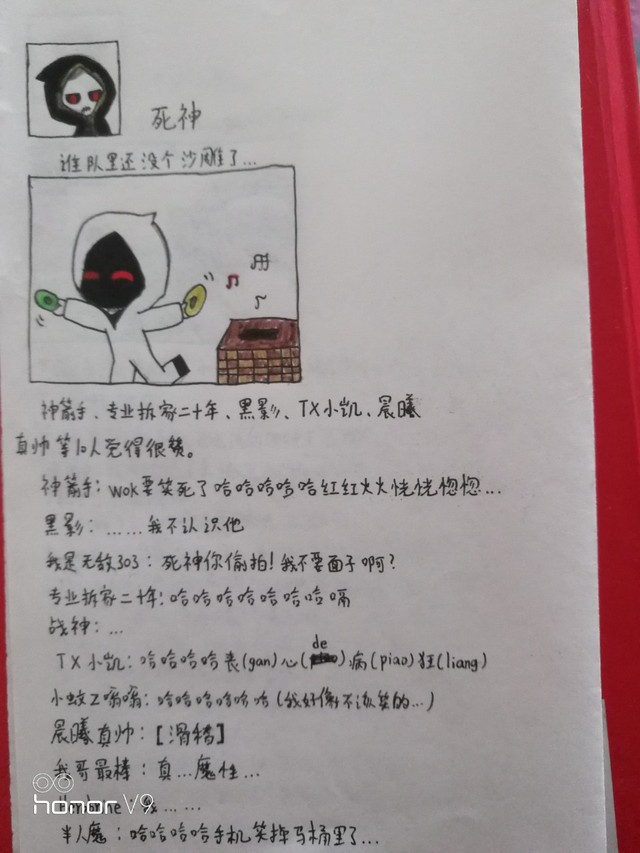 死神
谁队里还没个沙雕了…
神箭手、专业拆家二十年、黑影、TX小凯、晨曦
真帅等10人觉得很赞。
神箭手：wok要笑死了哈哈哈哈哈红红火火恍恍惚惚…
黑影：……我不认识他
我是无敌303：死神你偷拍！我不要面子啊？
专业拆家二十年：哈哈哈哈哈哈哈嗝
战神：…
TX小凯：哈哈哈哈丧(gan)心(de)病(piao)狂(liang)
小蚊Z嗡嗡：哈哈哈哈哈哈(我好像不该笑的…)
晨曦真帅：[滑稽]
我哥最棒：真…魔性…
honor V9
半人魔：哈哈哈哈手机笑掉马桶里了…